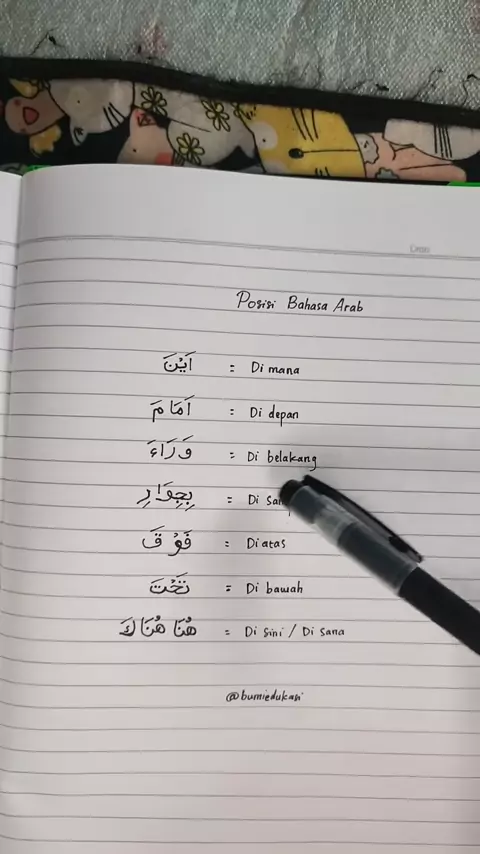 Date
Posisi Bahasa Arab
اَيْنَ = Di mana
اَمَامَ = Di depan
وَرَاءَ = Di belakang
بِجِوَارِ = Di
فَوْقَ = Di atas
تَحْتَ = Di bawah
هُنَا هُنَاكَ = Di sini / Di sana
@bumiedukasi